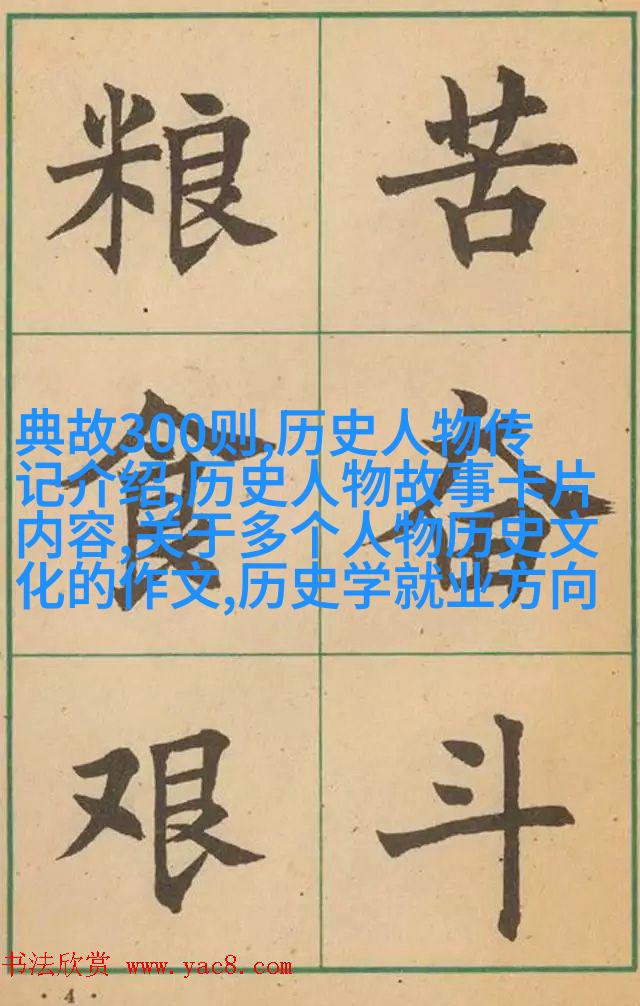 粮食艰
苦奋斗
典故300则,历史人物传
记介绍,历史人物故事卡片
内容,关于多个人物历史文
化的作文,历史学就业方向
书法欣赏 www.yac8.com
· 4 ·